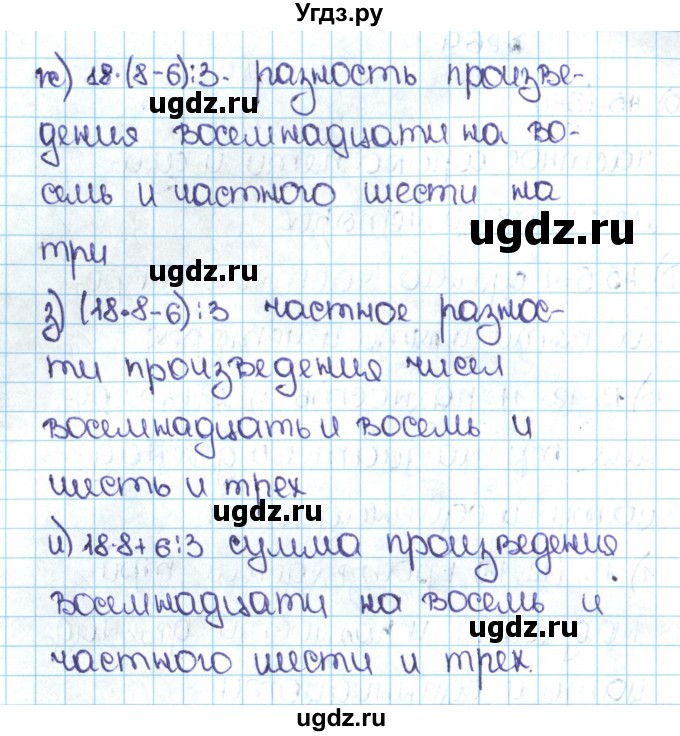 Угдз.ру
ж) 18·(8-6):3- разность произве-
ugdz.ru ugdz.ru
дения восемнадцати на во-
семь и частного шести на
ugdz.ru
три
ugdz.ru
з) (18·8-6):3 частное разнос-
ти произведения чисел
ugdz.ru ugdz.ru
восемнадцать и восемь и
шесть и трех
ugdz.ru
и) 18·8+6:3 сумма произведения
восемнадцати на восемь и
ugdz.ru
частного шести и трех.
ugdz.ru ugdz.ru
ugdz.ru